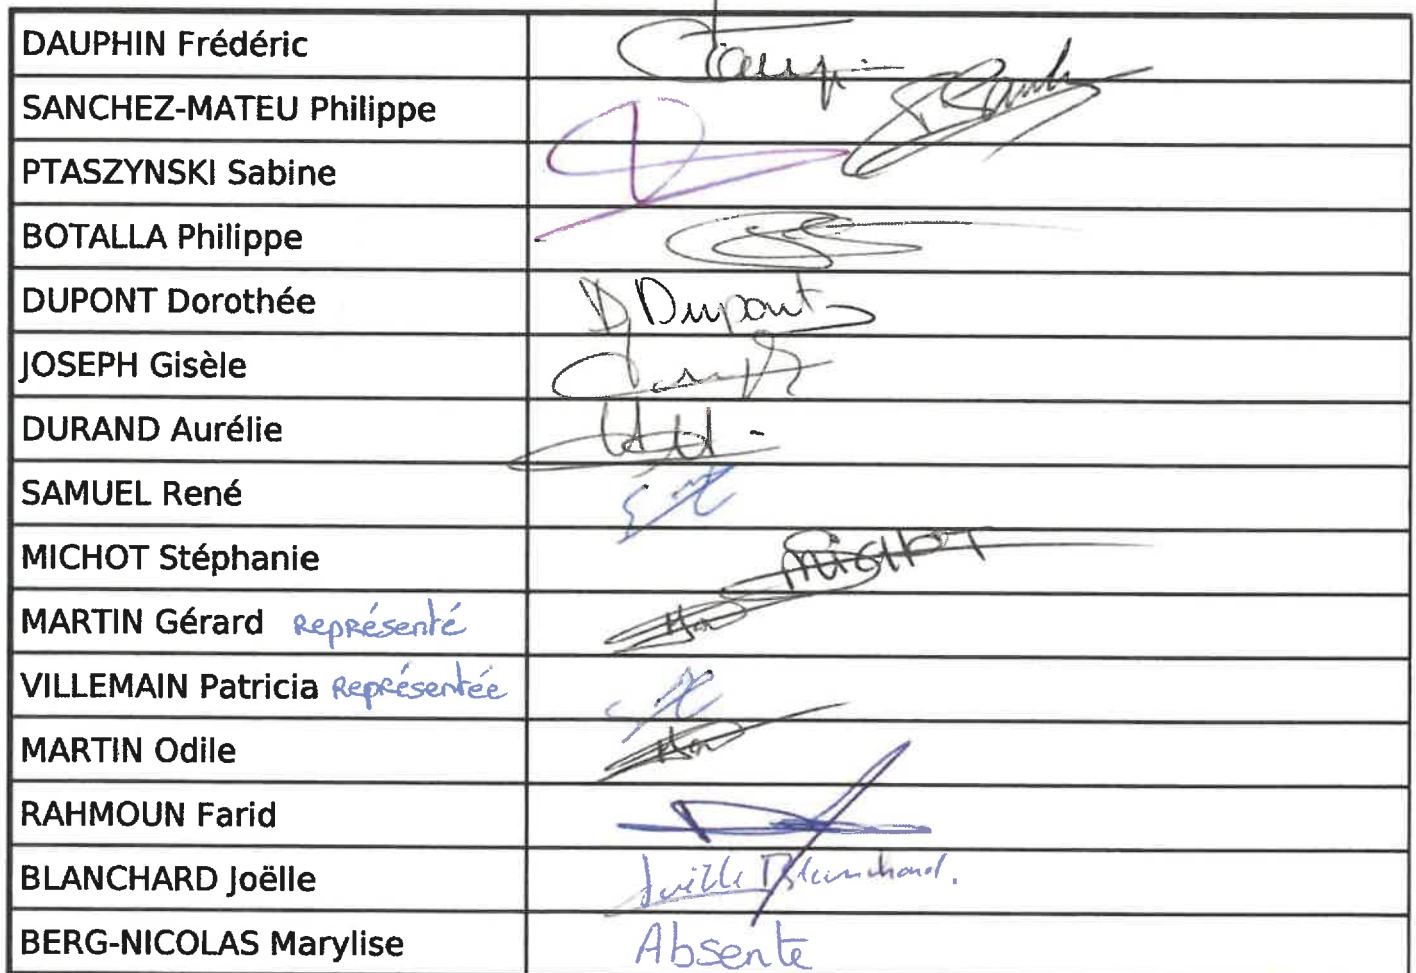 DAUPHIN Frédéric
SANCHEZ-MATEU Philippe
PTASZYNSKI Sabine
BOTALLA Philippe
DUPONT Dorothée D Dupont
JOSEPH Gisèle
DURAND Aurélie
SAMUEL René
MICHOT Stéphanie MICHOT
MARTIN Gérard Représenté
VILLEMAIN Patricia Représentée
MARTIN Odile
RAHMOUN Farid
BLANCHARD Joëlle Joëlle Blanchard.
BERG-NICOLAS Marylise Absente